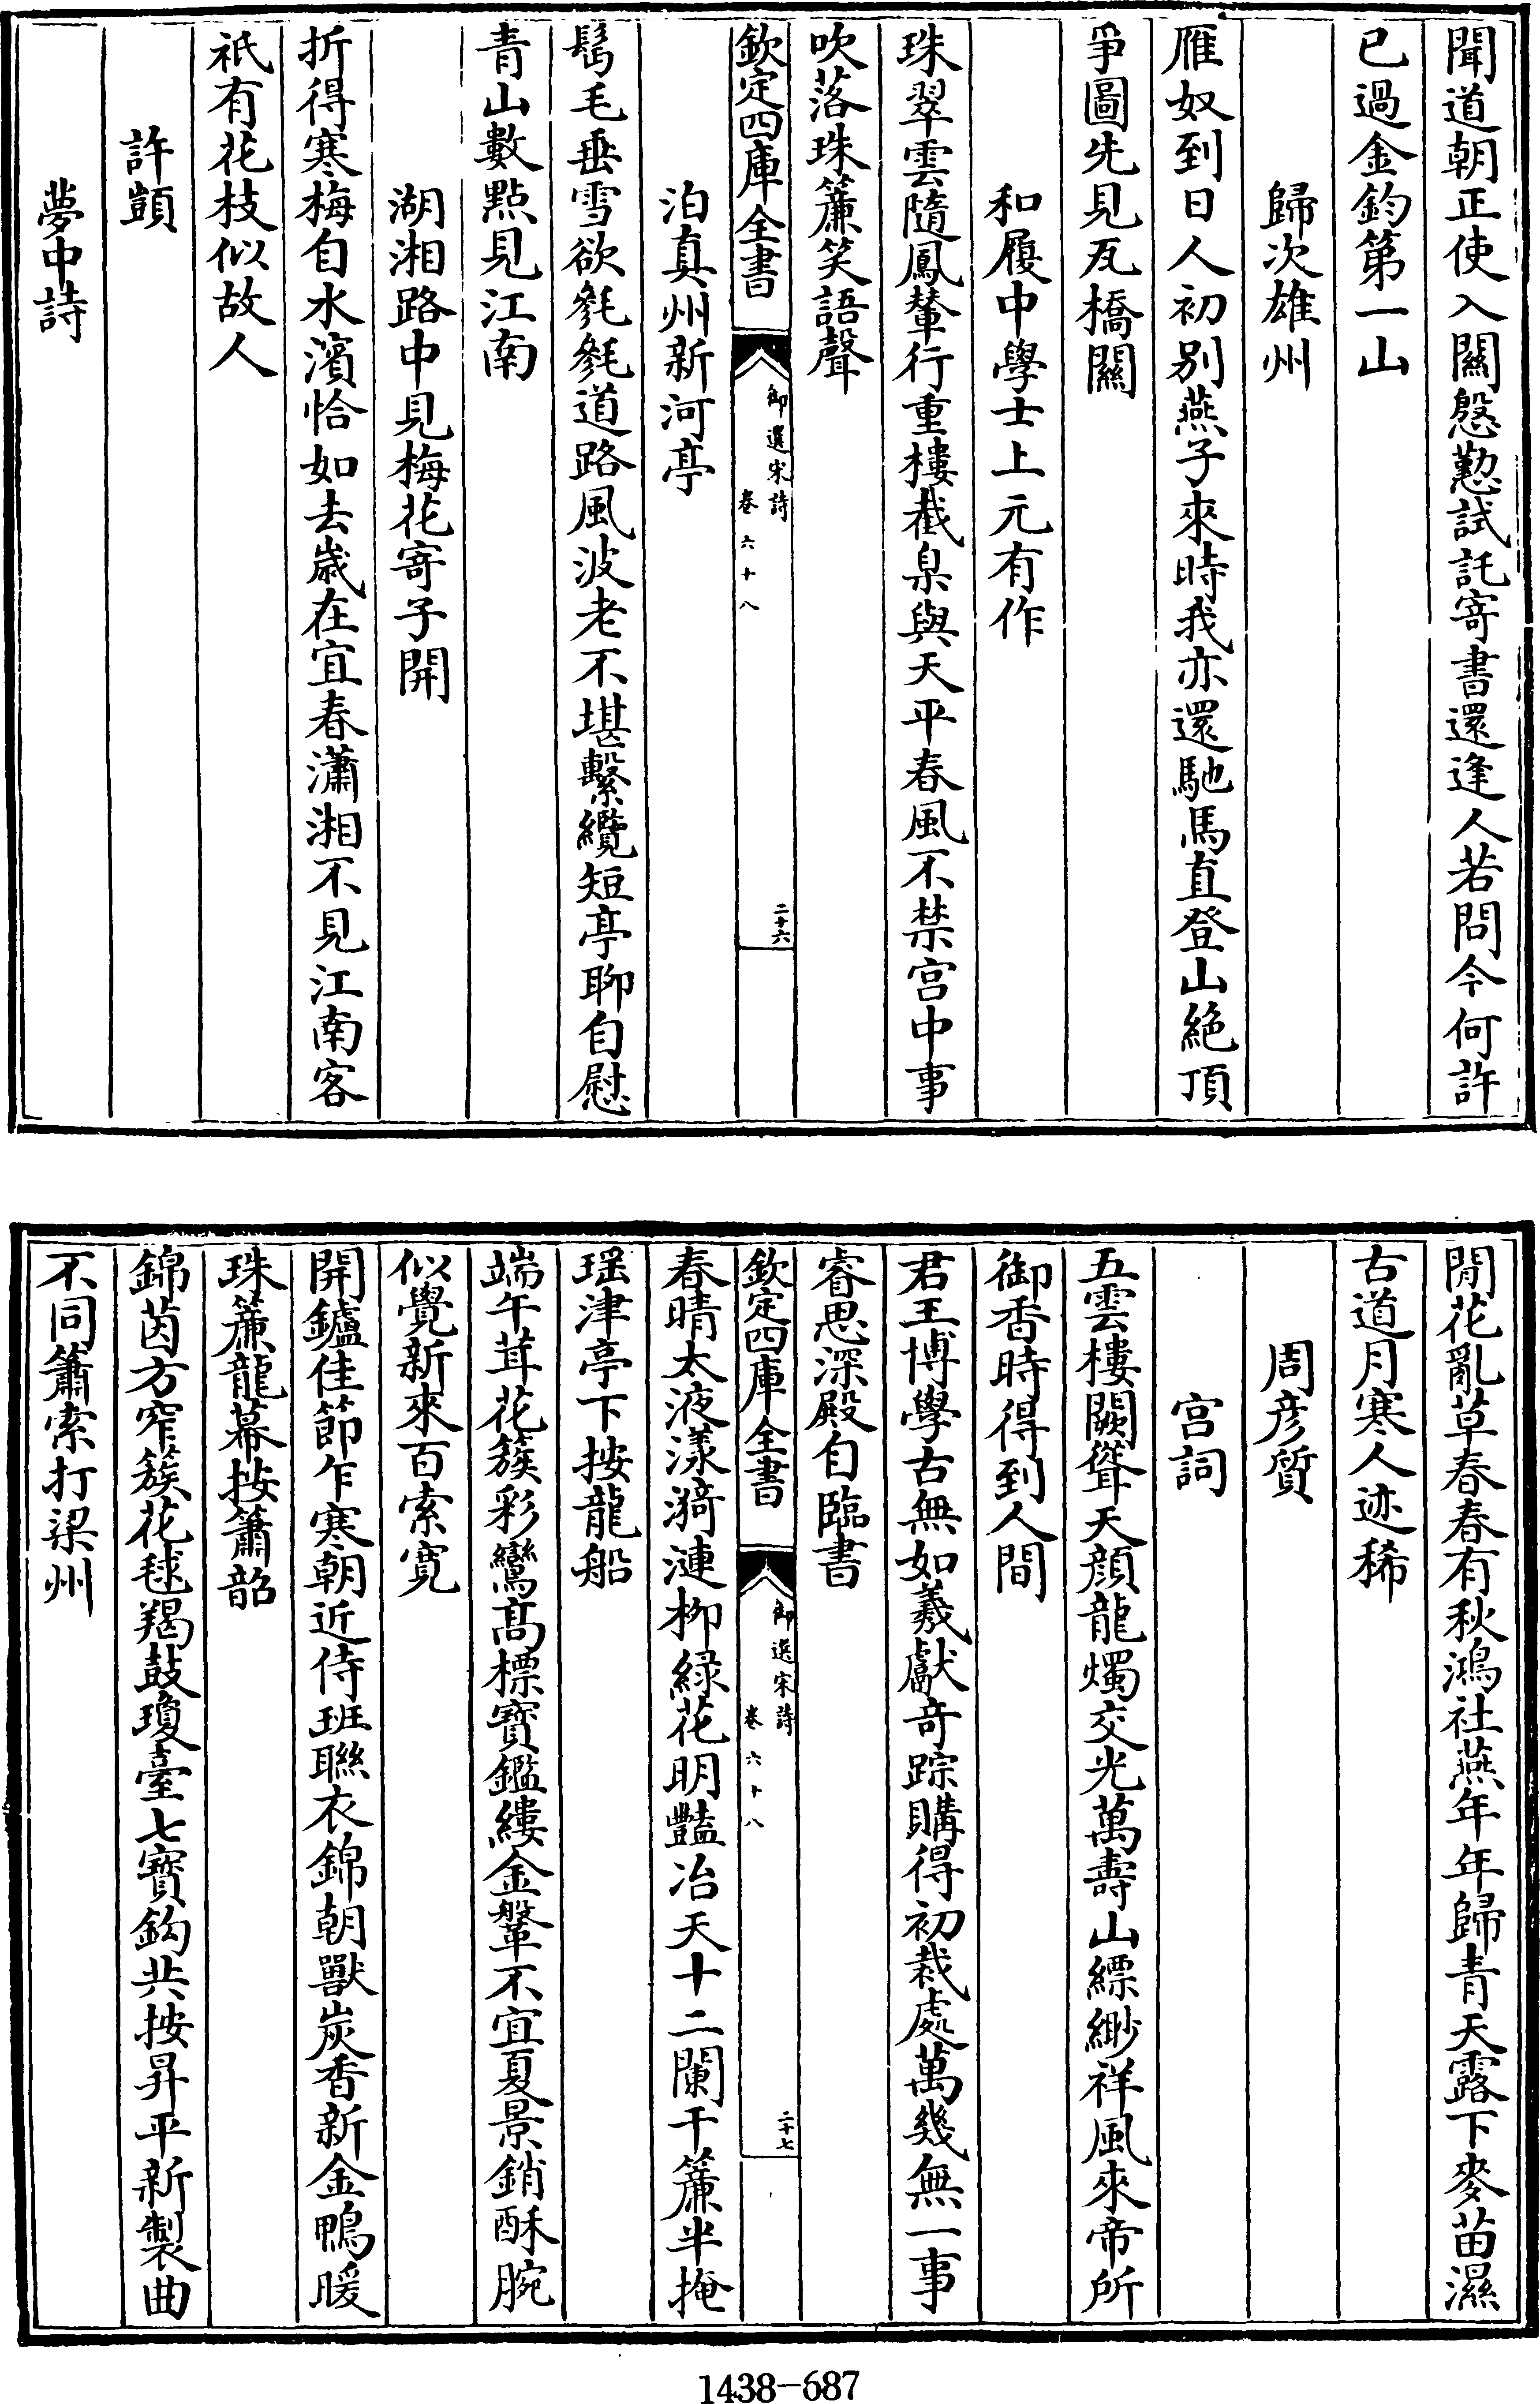 聞道朝正使入關慇懃試託寄書還逢人若問今何許
已過金鈞第一山
歸次雄州
雁奴到日人初别燕子來時我亦還馳馬直登山絶頂
爭圖先見瓦橋關
和履中學士上元有作
珠翠雲隨鳳輦行重樓截臬與天平春風不禁宫中事
吹落珠簾笑語聲
欽定四庫全書
御選宋詩
卷六十八
二十六
泊真州新河亭
髩毛垂雪欲毿毿道路風波老不堪繫纜短亭聊自慰
青山數點見江南
湖湘路中見梅花寄子開
折得寒梅自水濱恰如去歲在宜春瀟湘不見江南客
祇有花枝似故人
許顗
夢中詩
閒花亂草春春有秋鴻社燕年年歸青天露下麥苗濕
古道月寒人迹稀
周彦質
宫詞
五雲樓闕聳天顔龍燭交光萬壽山縹緲祥風來帝所
御香時得到人間
君王博學古無如羲獻竒踪購得初裁處萬幾無一事
睿思深殿自臨書
欽定四庫全書
御選宋詩
卷六十八
二十七
春晴太液漾漪漣栁緑花明豔冶天十二闌干簾半掩
瑶津亭下按龍船
端午茸花簇彩鸞髙標寳鑑縷金鞶不宜夏景銷酥腕
似覺新來百索寛
開鑪佳節乍寒朝近侍班聯衣錦朝獸炭香新金鴨暖
珠簾龍幕按簫韶
錦茵方窄簇花毬羯鼓瓊臺七寳鈎共按昇平新製曲
不同簫索打梁州
1438-687